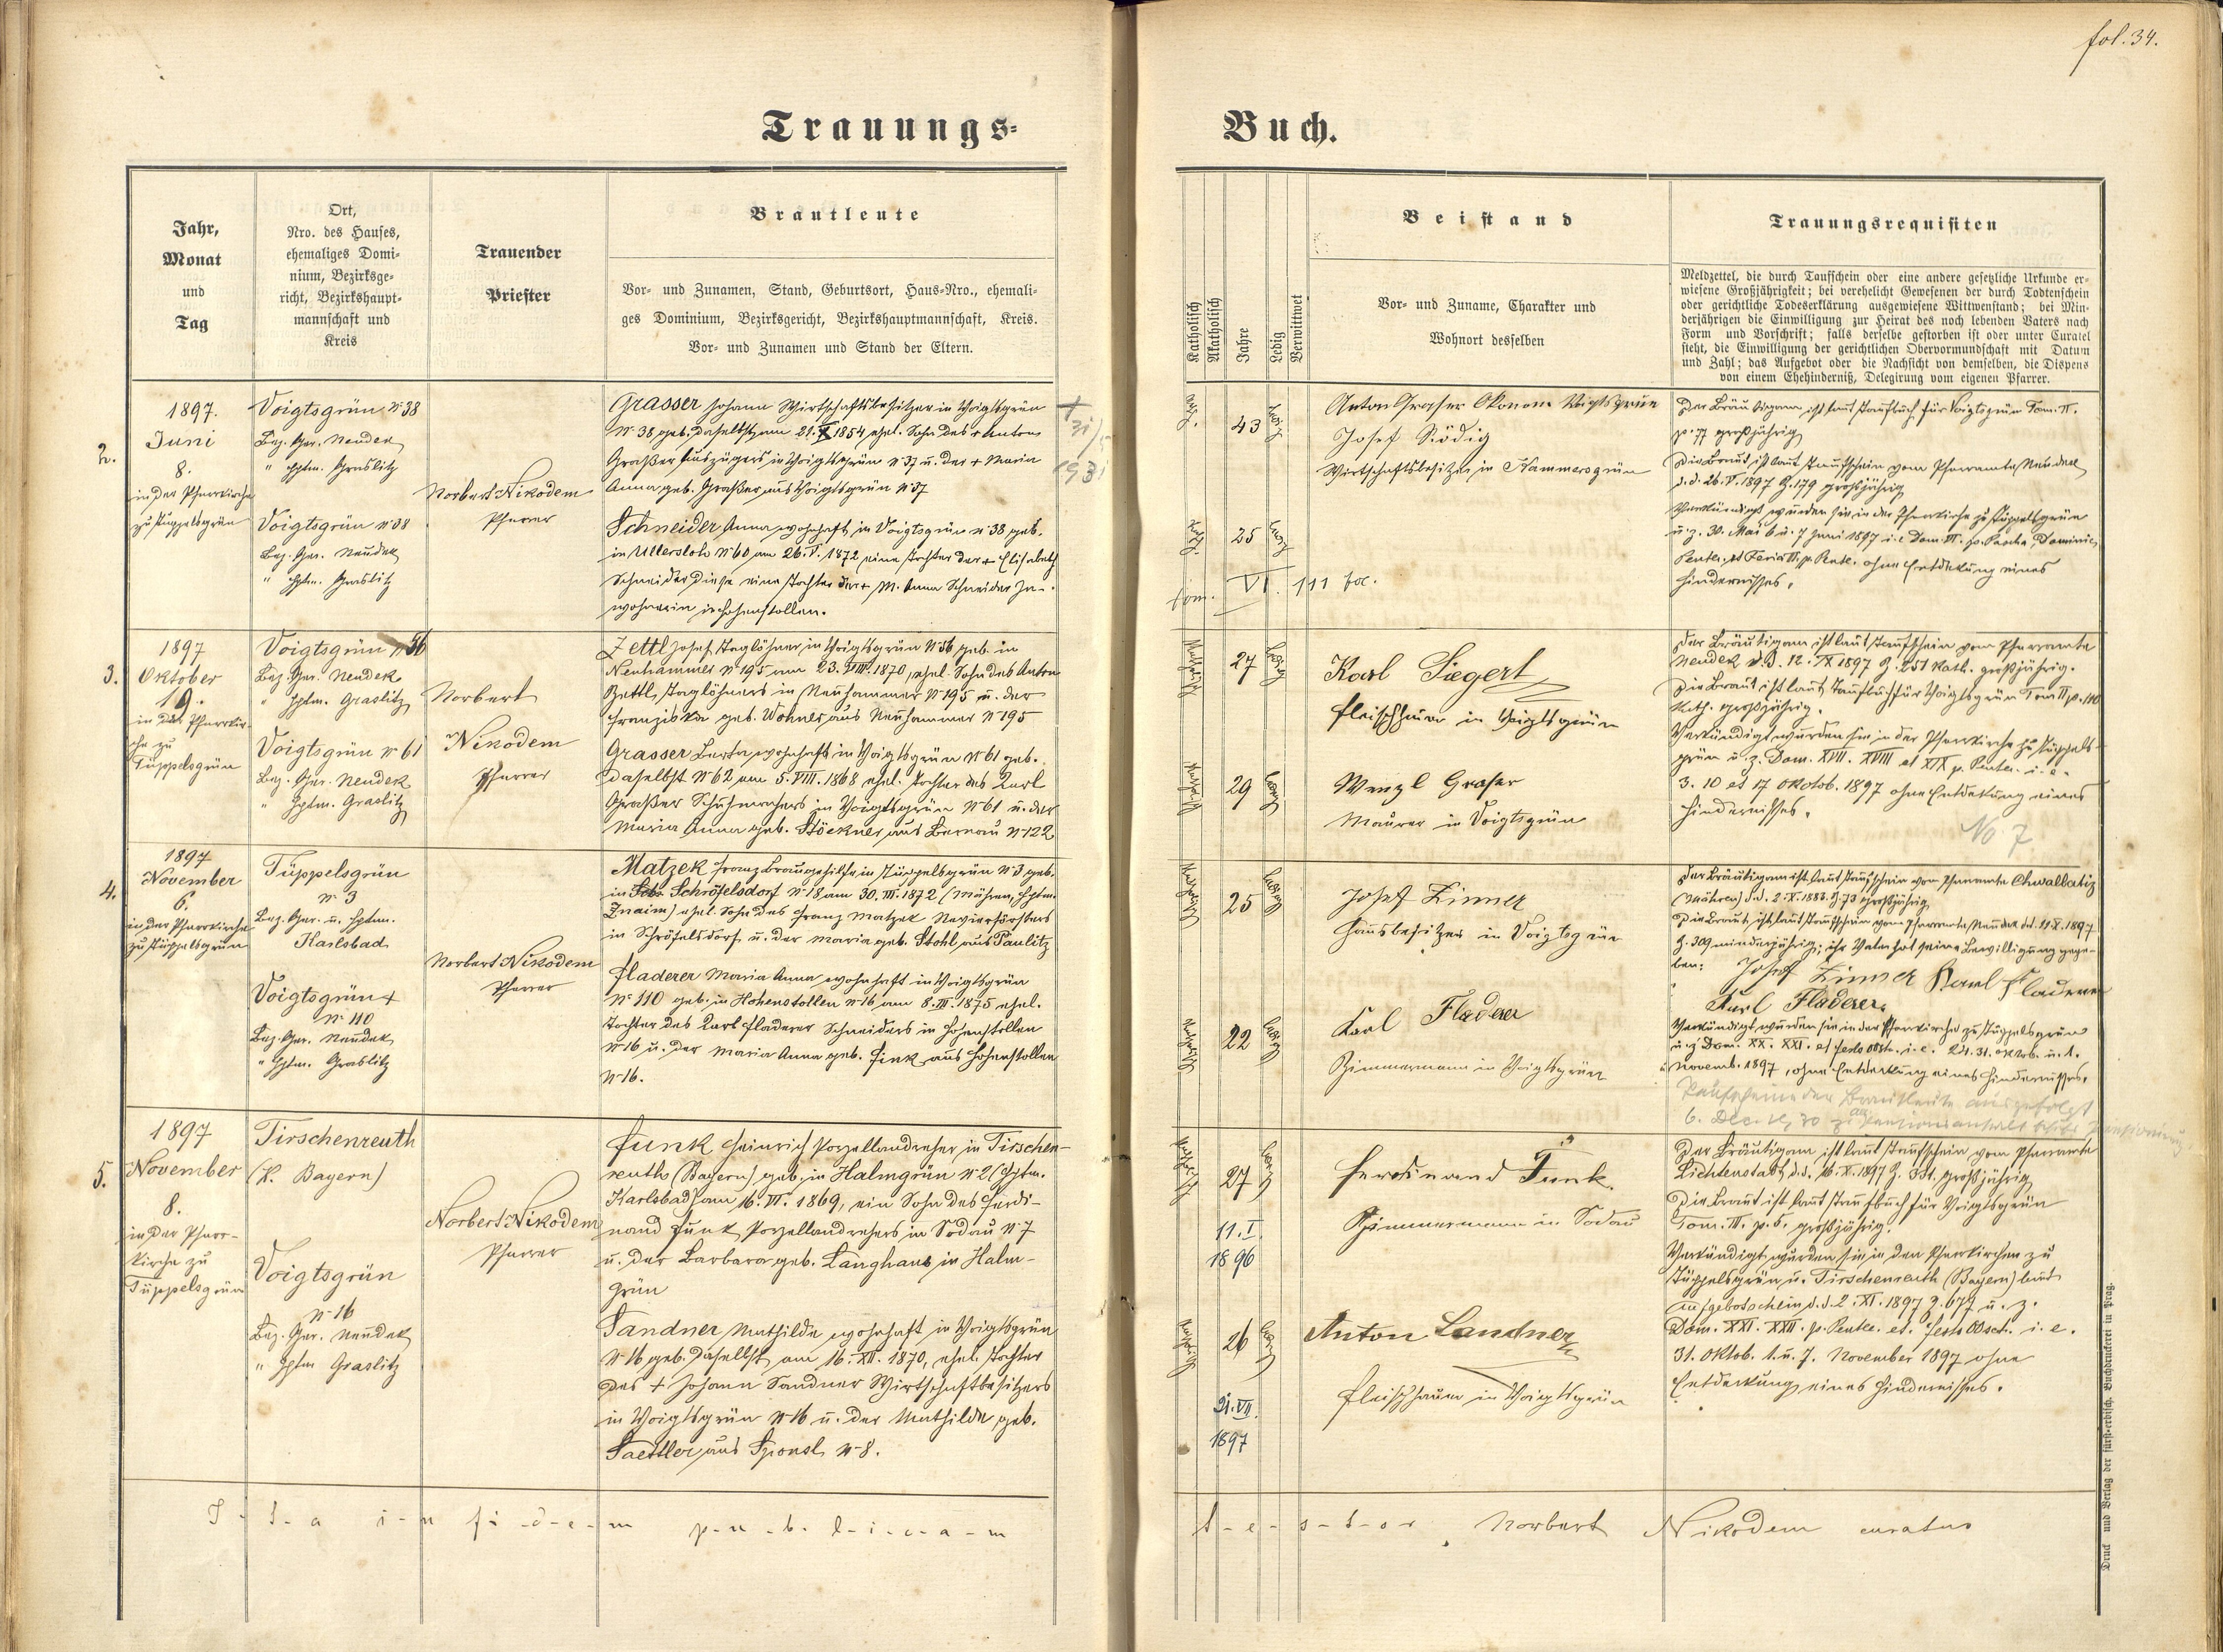 fol. 34.
Trauungs-
Buch.
Jahr,
Monat
und
Tag
Ort,
Nro. des Hauses,
ehemaliges Domi-
nium, Bezirksge-
richt, Bezirkshaupt-
mannschaft und
Kreis
Trauender
Priester
Brautleute
Vor- und Zunamen, Stand, Geburtsort, Haus-Nro., ehemali-
ges Dominium, Bezirksgericht, Bezirkshauptmannschaft, Kreis.
Vor- und Zunamen und Stand der Eltern.
Katholisch
Akatholisch
Jahre
Ledig
Verwittwet
Beistand
Vor- und Zuname, Charakter und
Wohnort desselben
Trauungsrequisiten
Meldzettel, die durch Taufschein oder eine andere gesetzliche Urkunde er-
wiesene Großjährigkeit; bei verehelicht Gewesenen der durch Todtenschein
oder gerichtliche Todeserklärung ausgewiesene Wittwenstand; bei Min-
derjährigen die Einwilligung zur Heirat des noch lebenden Vaters nach
Form und Vorschrift; falls derselbe gestorben ist oder unter Curatel
steht, die Einwilligung der gerichtlichen Obervormundschaft mit Datum
und Zahl; das Aufgebot oder die Nachsicht von demselben, die Dispens
von einem Ehehinderniß, Delegirung vom eigenen Pfarrer.
2.
1897.
Juni
8.
in der Pfarrkirche
zu Tüppelsgrün
Voigtsgrün N 38
Bez. Ger. Neudek
" Hptm. Graslitz
Voigtsgrün N 38
Bez. Ger. Neudek
" Hptm. Graslitz
Norbert Nikodem
Pfarrer
Grasser Johann Wirtschaftsbesitzer in Voigtsgrün
N 38 geb. daselbst am 21. X 1854 ehel. Sohn des + Anton
Graßer Auszügers in Voigtsgrün N 37 u. der + Maria
Anna geb. Graßer aus Voigtsgrün N 37
Schneider Anna wohnhaft in Voigtsgrün N 38 geb.
in Ullersloh N 60 am 26. V. 1872 eine Tochter der + Elisabeth
Schneider diese eine Tochter der + M. Anna Schneider In-
wohnerin in Hohenstollen.
+
31/5
1931
43
25
tom. VI. 111 fol.
Anton Graser Ökonom Voigtsgrün
Josef Rödig
Wirtschaftsbesitzer in Hammersgrün
Der Bräutigam ist laut Taufbuch für Voigtsgrün Tom. II.
p. 77 großjährig
Die Braut ist laut Taufschein vom Pfarramte Neudek
d. d. 26. V. 1897 Z. 179 großjährig
Verkündigt wurden sie in der Pfarrkirche zu Tüppelsgrün
u. z. 30. Mai 6 u. 7 Juni 1897 i. e Dom. VI. p. Pascha, Dominic.
Pentec. et Feria II. p. Pentc. ohne Entdekung eines
Hindernisses.
3.
1897
Oktober
19.
in der Pfarrkir-
che zu
Tüppelsgrün
Voigtsgrün N 56
Bez. Ger. Neudek
" Hptm. Graslitz
Voigtsgrün N 61
Bez. Ger. Neudek
" Hptm. Graslitz
Norbert
Nikodem
Pfarrer
Zettl Josef Taglöhner in Voigtsgrün N 56 geb. in
Neuhammer N 195 am 23. VIII. 1870, ehel. Sohn des Anton
Zettl, Taglöhners in Neuhammer N 195 u. der
Franziska geb. Wohner aus Neuhammer N 195
Grasser Berta wohnhaft in Voigtsgrün N 61 geb.
daselbst N 62 am 5. VIII. 1868 ehel. Tochter des Karl
Graßer Schuhmachers in Voigtsgrün N 61 u. der
Maria Anna geb. Stöckner aus Bernau N 122
Katholisch
27
ledig
Katholisch
29
ledig
Karl Siegert
Fleischhauer in Voigtsgrün
Wenzl Graser
Maurer in Voigtsgrün
Der Bräutigam ist laut Taufschein vom Pfarramte
Neudek d. d. 12. IX 1897 Z. 251 kath. großjährig.
Die Braut ist laut Taufbuch für Voigtsgrün Tom II p. 110
kath. großjährig.
Verkündigt wurden sie in der Pfarrkirche zu Tüppels-
grün u. z. Dom. XVII. XVIII et XIX p. Pentec. i. e.
3. 10 et 17 Oktob. 1897 ohne Entdekung eines
Hindernisses.
No 7
4.
1897
November
6.
in der Pfarrkirche
zu Tüppelsgrün
Tüppelsgrün
N 3
Bez. Ger. u. Hptm.
Karlsbad
Voigtsgrün
N 110
Bez. Ger. Neudek
" Hptm. Graslitz
Norbert Nikodem
Pfarrer
Matzek Franz Braugehilfe in Tüppelsgrün N 3 geb.
in Schröfelsdorf N 18 am 30. III. 1872 (Mähren, Hptm.
Znaim) ehel. Sohn des Franz Matzek Revierförsters
in Schröfelsdorf u. der Maria geb. Stohl aus Paulitz
Fladerer Maria Anna wohnhaft in Voigtsgrün
N 110 geb. in Hohenstollen N 16 am 8. III. 1875 ehel.
Tochter des Karl Fladerer Schneiders in Hohenstollen
N 16 u. der Maria Anna geb. Fink aus Hohenstollen
N 16.
Katholisch
25
ledig
Katholisch
22
ledig
Josef Zinner
Hausbesitzer in Voigtsgrün
Karl Fladerer
Zimmermann in Voigtsgrün
Der Bräutigam ist laut Taufschein vom Pfarramte Chwallatiz
(Mähren) d. d. 2. X. 1883. Z. 73 großjährig
Die Braut ist laut Taufschein vom Pfarramte Neudek dd. 11 X. 1897
Z. 309 minderjährig; ihr Vater hat seine Bewilligung gege-
ben: Josef Zinner Karl Fladerer
Karl Fladerer.
Verkündigt wurden sie in der Pfarrkirche zu Tüppelsgrün
u. z Dom. XX. XXI. et festo OOSt. i. e. 24. 31. Oktob. u. 1.
Novemb. 1897, ohne Entdeckung eines Hindernisses.
Taufscheine der Brautleute ausgefolgt
5.
1897
November
8.
in der Pfarr-
kirche zu
Tüppelsgrün
Tirschenreuth
(K. Bayern)
Voigtsgrün
N 16
Bez. Ger. Neudek
" Hptm Graslitz
Norbert Nikodem
Pfarrer
Funk Heinrich Porzellandreher in Tirschen-
reuth (Bayern) geb. in Halmgrün N 2 (Hptm.
Karlsbad) am 16. VI. 1869, ein Sohn des Ferdi-
nand Funk Porzellandrehers in Sodau N 7
u. der Barbara geb. Langhans in Halm-
grün
Sandner Mathilde wohnhaft in Voigtsgrün
N 16 geb. daselbst am 16. XII. 1870, ehel. Tochter
des + Johann Sandner Wirtschaftsbesitzers
in Voigtsgrün N 16 u. der Mathilde geb.
Saettler aus Sponsl N 8.
Katholisch
27
ledig
11. I.
1896
Katholisch
26
ledig
1897
Ferdinand Funk.
Zimmermann in Sodau
Anton Sandner
Fleischhauer in Voigtsgrün
Der Bräutigam ist laut Taufschein vom Pfarramte
Lichtenstadt, d. d. 16. X. 1897 Z. 331. großjährig
Die Braut ist laut Taufbuch für Voigtsgrün
Tom. III. p. 5. großjährig.
Verkündigt wurden sie in den Pfarrkirchen zu
Tüppelsgrün u. Tirschenreuth (Bayern) laut
Aufgebotschein d. d. 2. XI. 1897 Z. 677 u. z.
Dom. XXI. XXII. p. Pentec. et. festo OOSct. i. e.
31. Oktob. 1. u. 7. November 1897 ohne
Entdeckung eines Hindernisses.
I - t - a i - n fi - d - e - m p - u - b - l - i - c - a - m
t - e - s - t - o - r. Norbert Nikodem curatus
Druck und Verlag der fürst-erzbisch. Buchdruckerei in Prag.